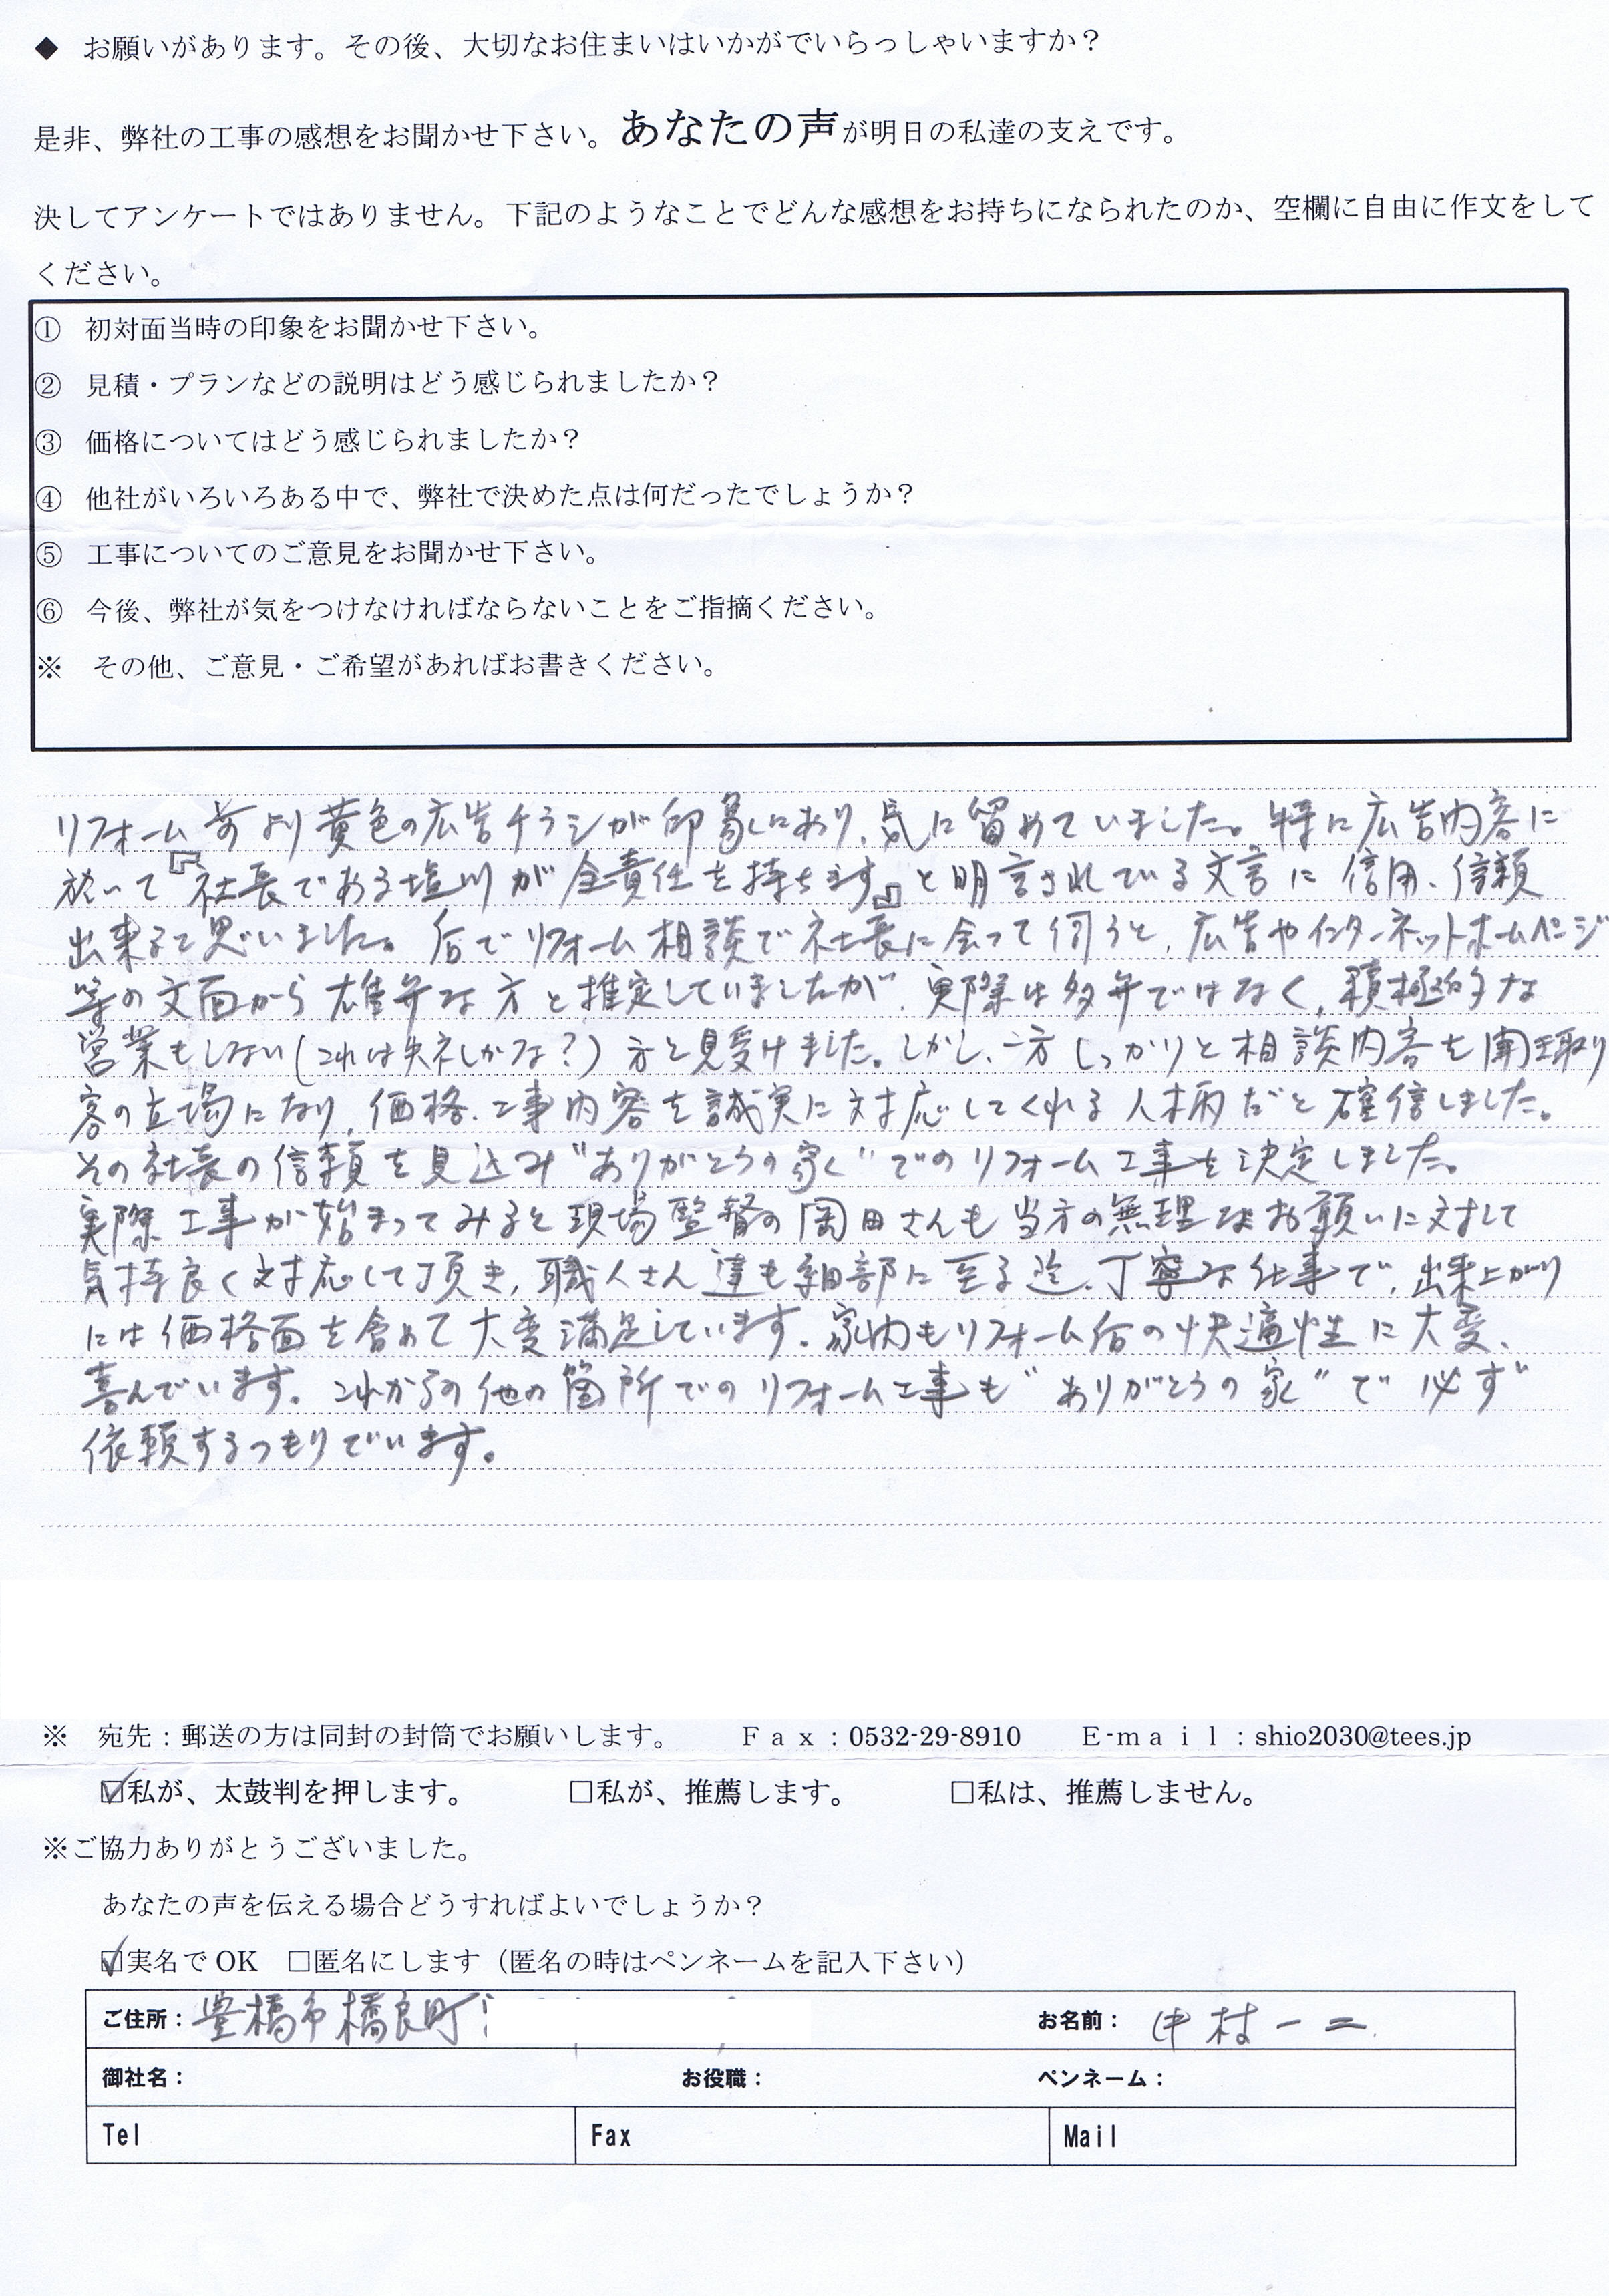 ◆ お願いがあります。その後、大切なお住まいはいかがでいらっしゃいますか？
是非、弊社の工事の感想をお聞かせ下さい。あなたの声が明日の私達の支えです。
決してアンケートではありません。下記のようなことでどんな感想をお持ちになられたのか、空欄に自由に作文をして
ください。
① 初対面当時の印象をお聞かせ下さい。
② 見積・プランなどの説明はどう感じられましたか？
③ 価格についてはどう感じられましたか？
④ 他社がいろいろある中で、弊社で決めた点は何だったでしょうか？
⑤ 工事についてのご意見をお聞かせ下さい。
⑥ 今後、弊社が気をつけなければならないことをご指摘ください。
※ その他、ご意見・ご希望があればお書きください。
リフォーム前より黄色の広告チラシが印象にあり、気に留めていました。特に広告内容に
於いて『社長である塩川が全責任を持ちます』と明言されている文言に信用、信頼
出来ると思いました。后でリフォーム相談で社長に会って伺うと、広告やインターネットホームページ
等の文面から雄弁な方と推定していましたが、実際は多弁ではなく、積極的な
営業もしない(これは失礼かな？)方と見受けました。しかし、一方しっかりと相談内容を聞き取り
客の立場になり、価格、工事内容を誠実に対応してくれる人柄だと確信しました。
その社長の信頼を見込み"ありがとうの家"でのリフォーム工事を決定しました。
実際工事が始まってみると現場監督の岡田さんも当方の無理なお願いに対して
気持良く対応して頂き、職人さん達も細部に至る迄、丁寧な仕事で、出来上がり
には価格面を含めて大変満足しています。家内もリフォーム后の快適性に大変、
喜んでいます。これからの他の箇所でのリフォーム工事も"ありがとうの家"で必ず
依頼するつもりでいます。
※ 宛先：郵送の方は同封の封筒でお願いします。 Ｆａｘ：0532-29-8910 Ｅ-ｍａｉｌ：shio2030@tees.jp
☑私が、太鼓判を押します。 □私が、推薦します。 □私は、推薦しません。
※ご協力ありがとうございました。
あなたの声を伝える場合どうすればよいでしょうか？
☑実名でOK □匿名にします（匿名の時はペンネームを記入下さい）
ご住所：豊橋市橋良町 お名前：中村一二
御社名： お役職： ペンネーム：
Tel Fax Mail